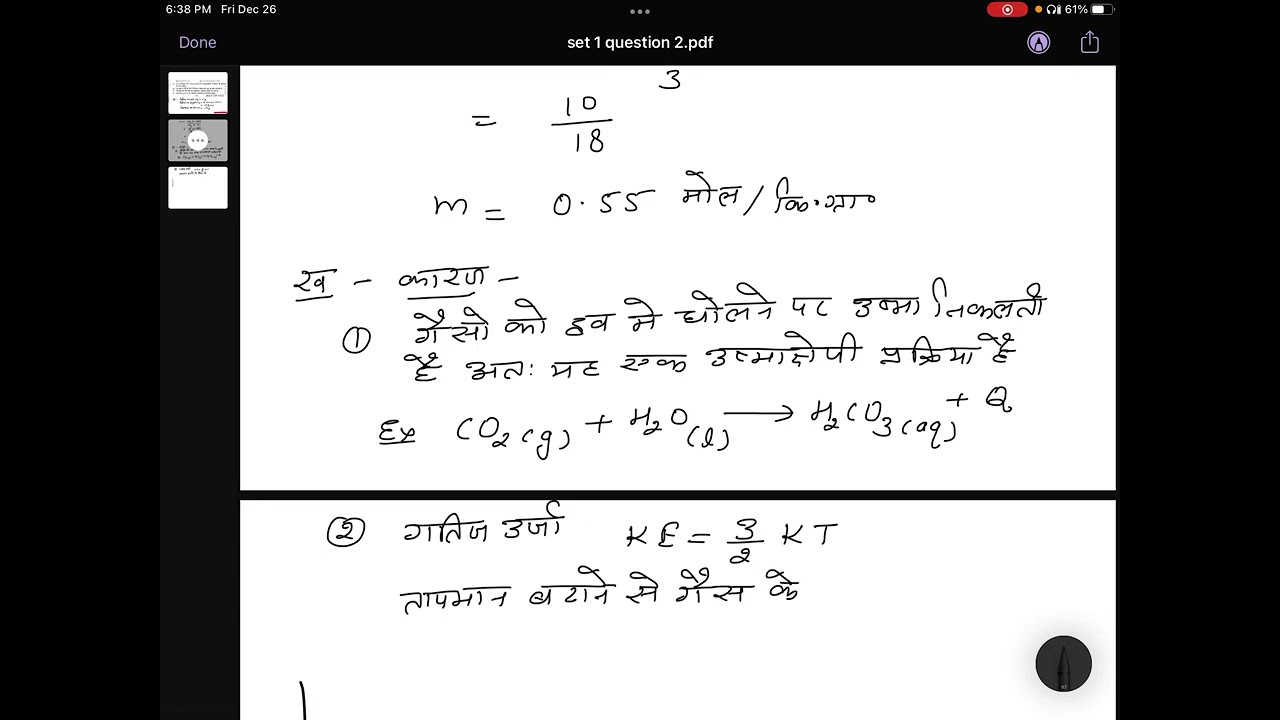 6:38 PM Fri Dec 26
61%
Done
set 1 question 2.pdf
3
= 10/18
m = 0.55 मोल / कि.ग्रा०
ख - कारण -
① गैसो को द्रव मे घोलने पर उष्मा निकलती
है अतः यह एक उष्माक्षेपी प्रक्रिया है
Ex CO₂(g) + H₂O(l) → H₂CO₃(aq) + Q
② गतिज उर्जा KE = 3/2 KT
तापमान बढाने से गैस के